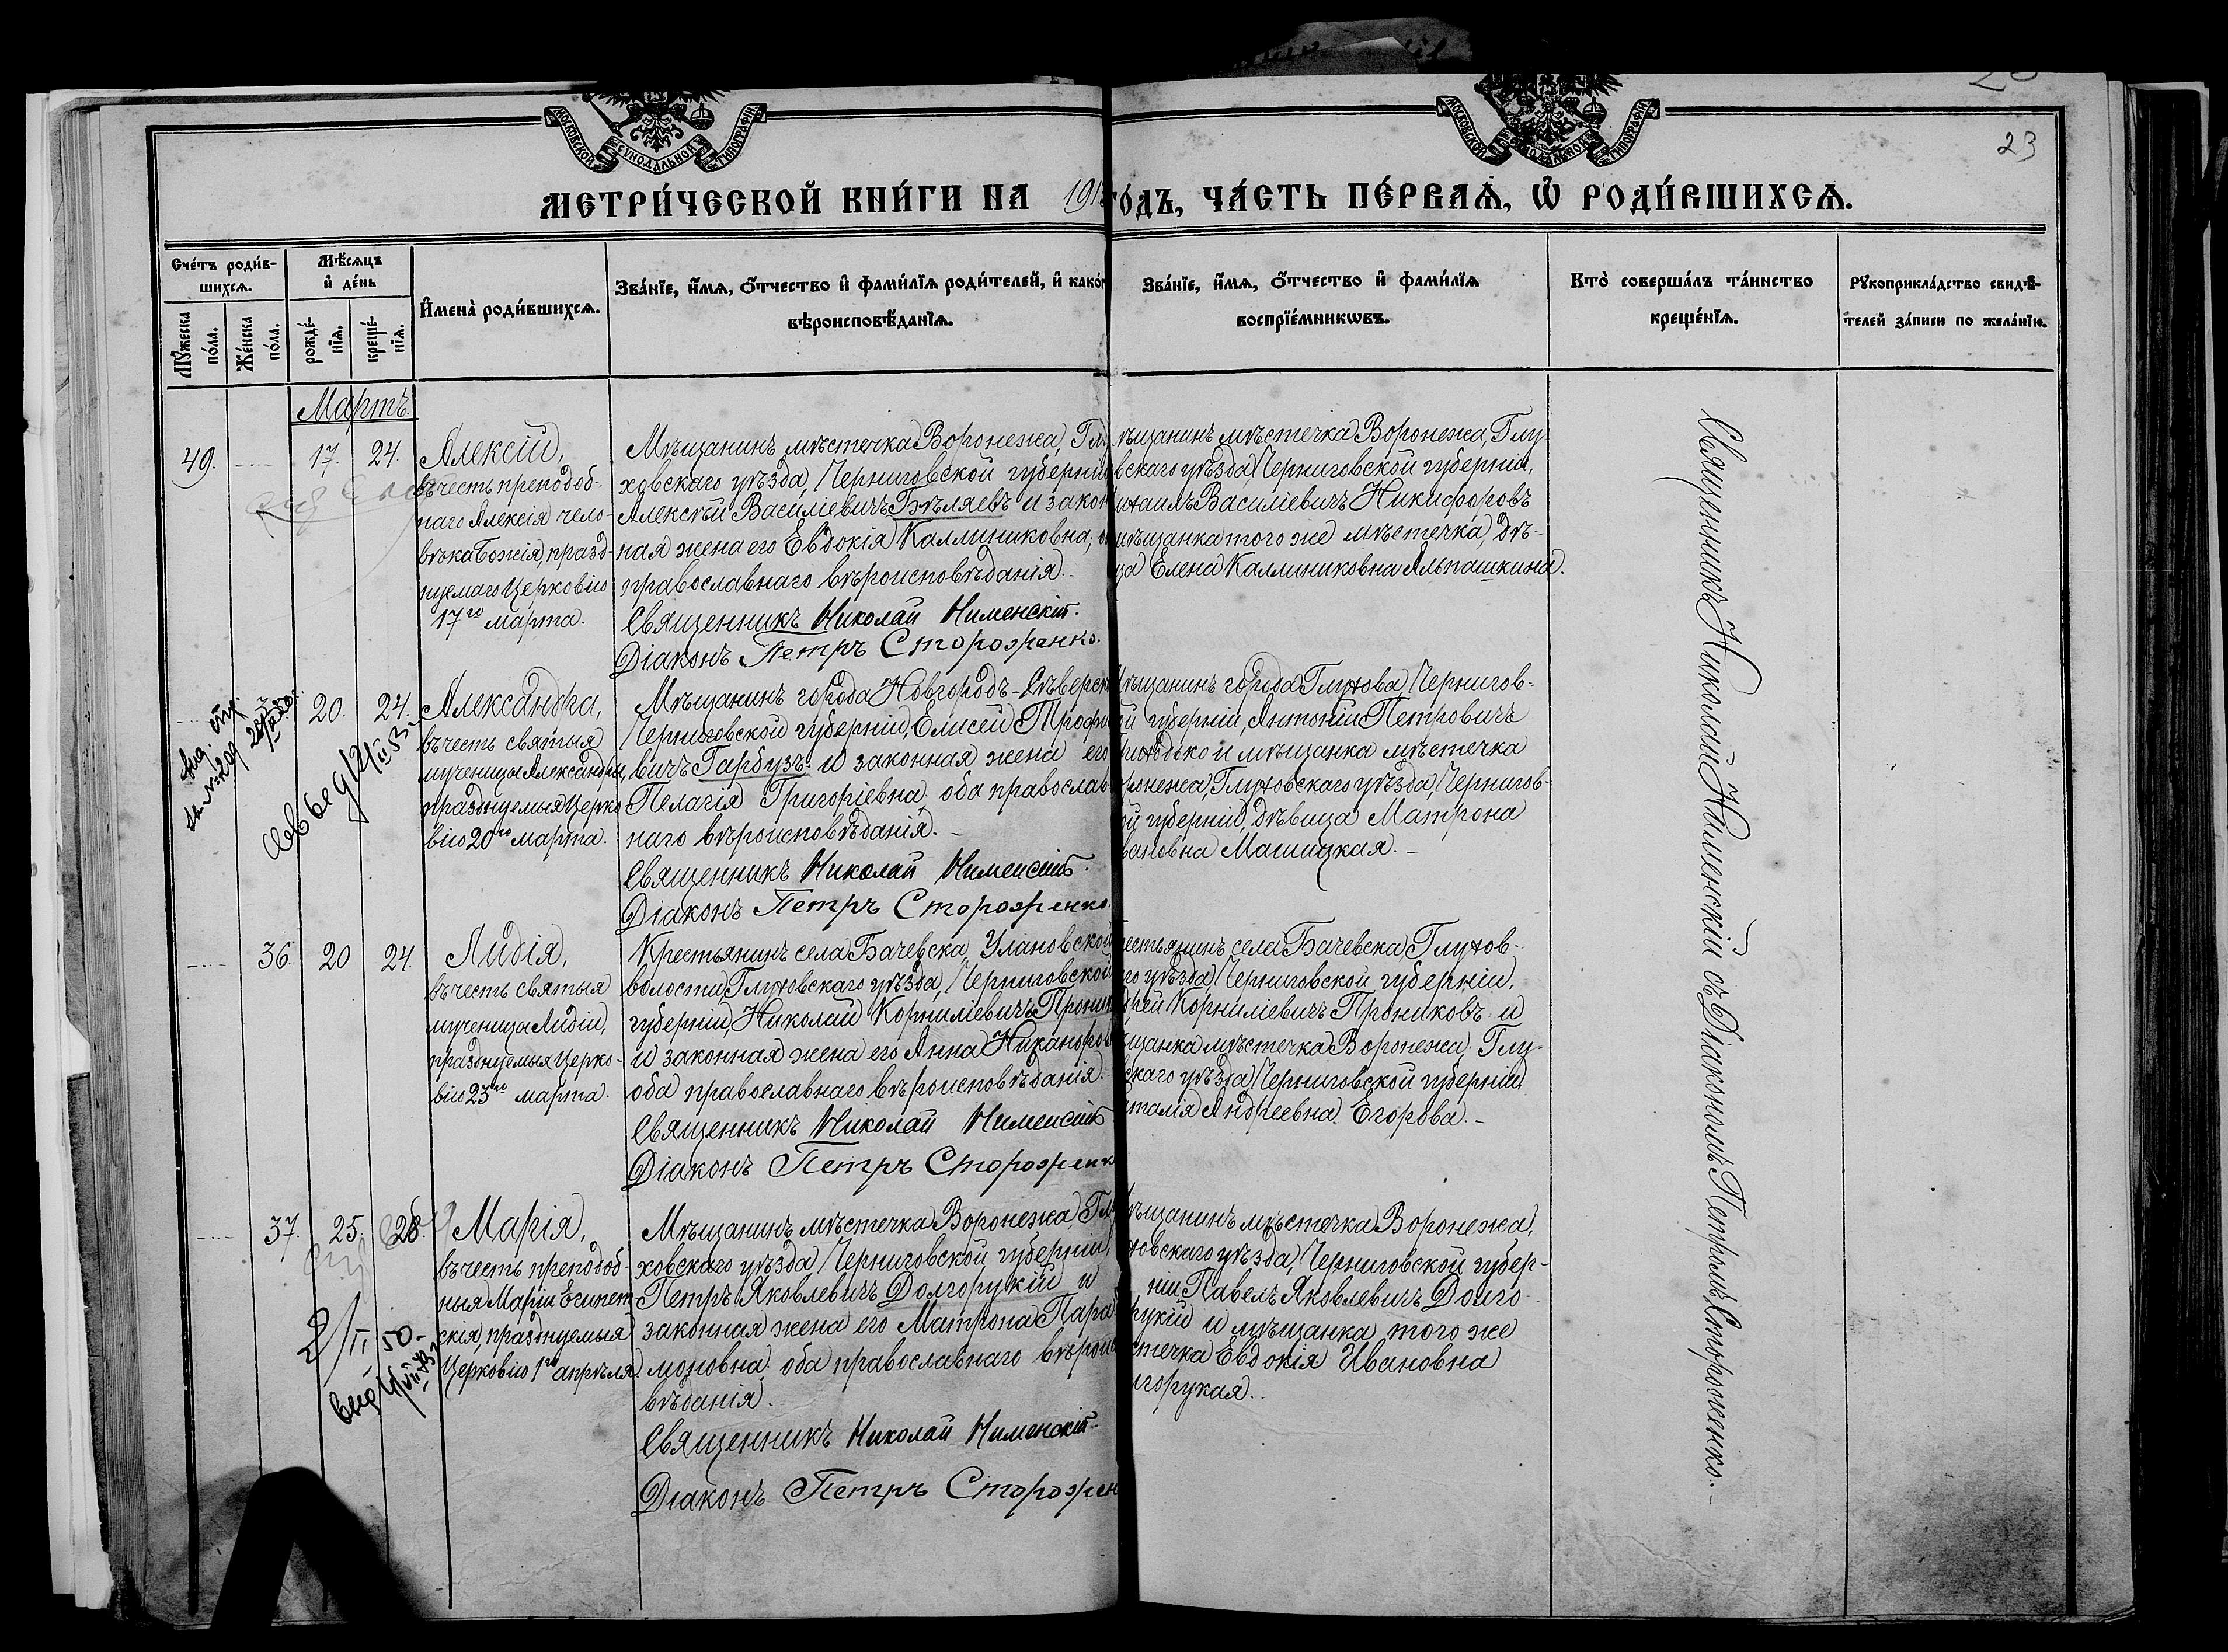 23
МОСКОВСКОЙ СУНОДАЛЬНОЙ ТИПОГРАФІИ
МОСКОВСКОЙ СУНОДАЛЬНОЙ ТИПОГРАФІИ
МЕТРИ́ЧЕСКОЙ КНИ́ГИ НА 191
ГО́ДЪ, ЧА́СТЬ ПЕ́РВАѦ, Ѽ РОДИ́ВШИХСѦ.
Сче́тъ роди́в-
шихсѧ.
Мꙋ́жеска по́ла.
Же́нска по́ла.
Мѣ́сѧцъ
и҆ де́нь
рожде́-
нїѧ.
креще́-
нїѧ.
И҆мена̀ роди́вшихсѧ.
Зва́нїе, и҆́мѧ, ѻ҆́тчество и҆ фами́лїѧ роди́телей, и҆ како́г
вѣроисповѣ́данїѧ.
Зва́нїе, и҆́мѧ, ѻ҆́тчество и҆ фами́лїѧ
воспрїе́мникѡвъ.
Кто̀ соверша́лъ та́инство
креще́нїѧ.
Рꙋкоприкла́дство свидѣ́-
телей за́писи по жела́нїю.
Мартъ.
49. 17. 24. Алексій,
въ честь преподоб-
наго Алексія чело-
вѣка Божія, празд-
нуемаго Церковію
17го марта.
Мѣщанинъ мѣстечка Воронежа, Глу
ховскаго уѣзда, Черниговской губерніи
Алексѣй Василіевичъ Бѣляевъ и закон
ная жена его Евдокія Каллиниковна,
православнаго вѣроисповѣданія.
Священникъ Николай Нименскій.
Діаконъ Петръ Стороженко.
ѣщанинъ мѣстечка Воронежа, Глу-
вскаго уѣзда, Черниговской губерніи,
ихаилъ Василіевичъ Никифоровъ
мѣщанка того же мѣстечка, дѣ-
ца Елена Каллиниковна Альпашкина.
20. 24. Александра,
въ честь святыя
мученицы Александры,
празднуемыя Церко
вію 20го марта.
Мѣщанинъ города Новгородъ-Сѣверск
Черниговской губерніи, Елисей Трофи
вичъ Гарбузъ и законная жена его
Пелагія Григоріевна, оба православ
наго вѣроисповѣданія.
Священникъ Николай Нименскій.
Діаконъ Петръ Стороженко.
ѣщанинъ города Глухова, Чернигов-
ой губерніи, Антоній Петровичъ
и мѣщанка мѣстечка
ронежа, Глуховскаго уѣзда, Чернигов-
ой губерніи, дѣвица Матрона
вановна Машицкая.
36. 20 24. Лидія,
въ честь святыя
мученицы Лидіи,
празднуемыя Церко-
вію 23го марта.
Крестьянинъ села Бачевска, Улановской
волости, Глуховскаго уѣзда, Черниговской
губерніи, Николай Корниліевичъ Проник
и законная жена его Анна Никаноров
оба православнаго вѣроисповѣданія.
Священникъ Николай Нименскій
Діаконъ Петръ Стороженк
естьянинъ села Бачевска, Глухов-
го уѣзда, Черниговской губерніи,
Корниліевичъ Прониковъ и
щанка мѣстечка Воронежа, Глу-
скаго уѣзда, Черниговской губерніи
талія Андреевна Егорова.
37. 25. 28. Марія,
въ честь преподоб-
ныя Маріи Египет
скія, празднуемыя
Церковію 1го апрѣля.
Мѣщанинъ мѣстечка Воронежа, Гл
ховскаго уѣзда, Черниговской губерніи,
Петръ Яковлевичъ Долгорукій и
законная жена его Матрона Пара
моновна, оба православнаго вѣроис
вѣданія.
Священникъ Николай Нименскій.
Діаконъ Петръ Сторожен
ѣщанинъ мѣстечка Воронежа,
ховскаго уѣзда, Черниговской губер-
ніи, Павелъ Яковлевичъ Долго-
рукій и мѣщанка того же
стечка Евдокія Ивановна
лгорукая.
Священникъ Николай Нименскій съ Діакономъ Петромъ Стороженко.